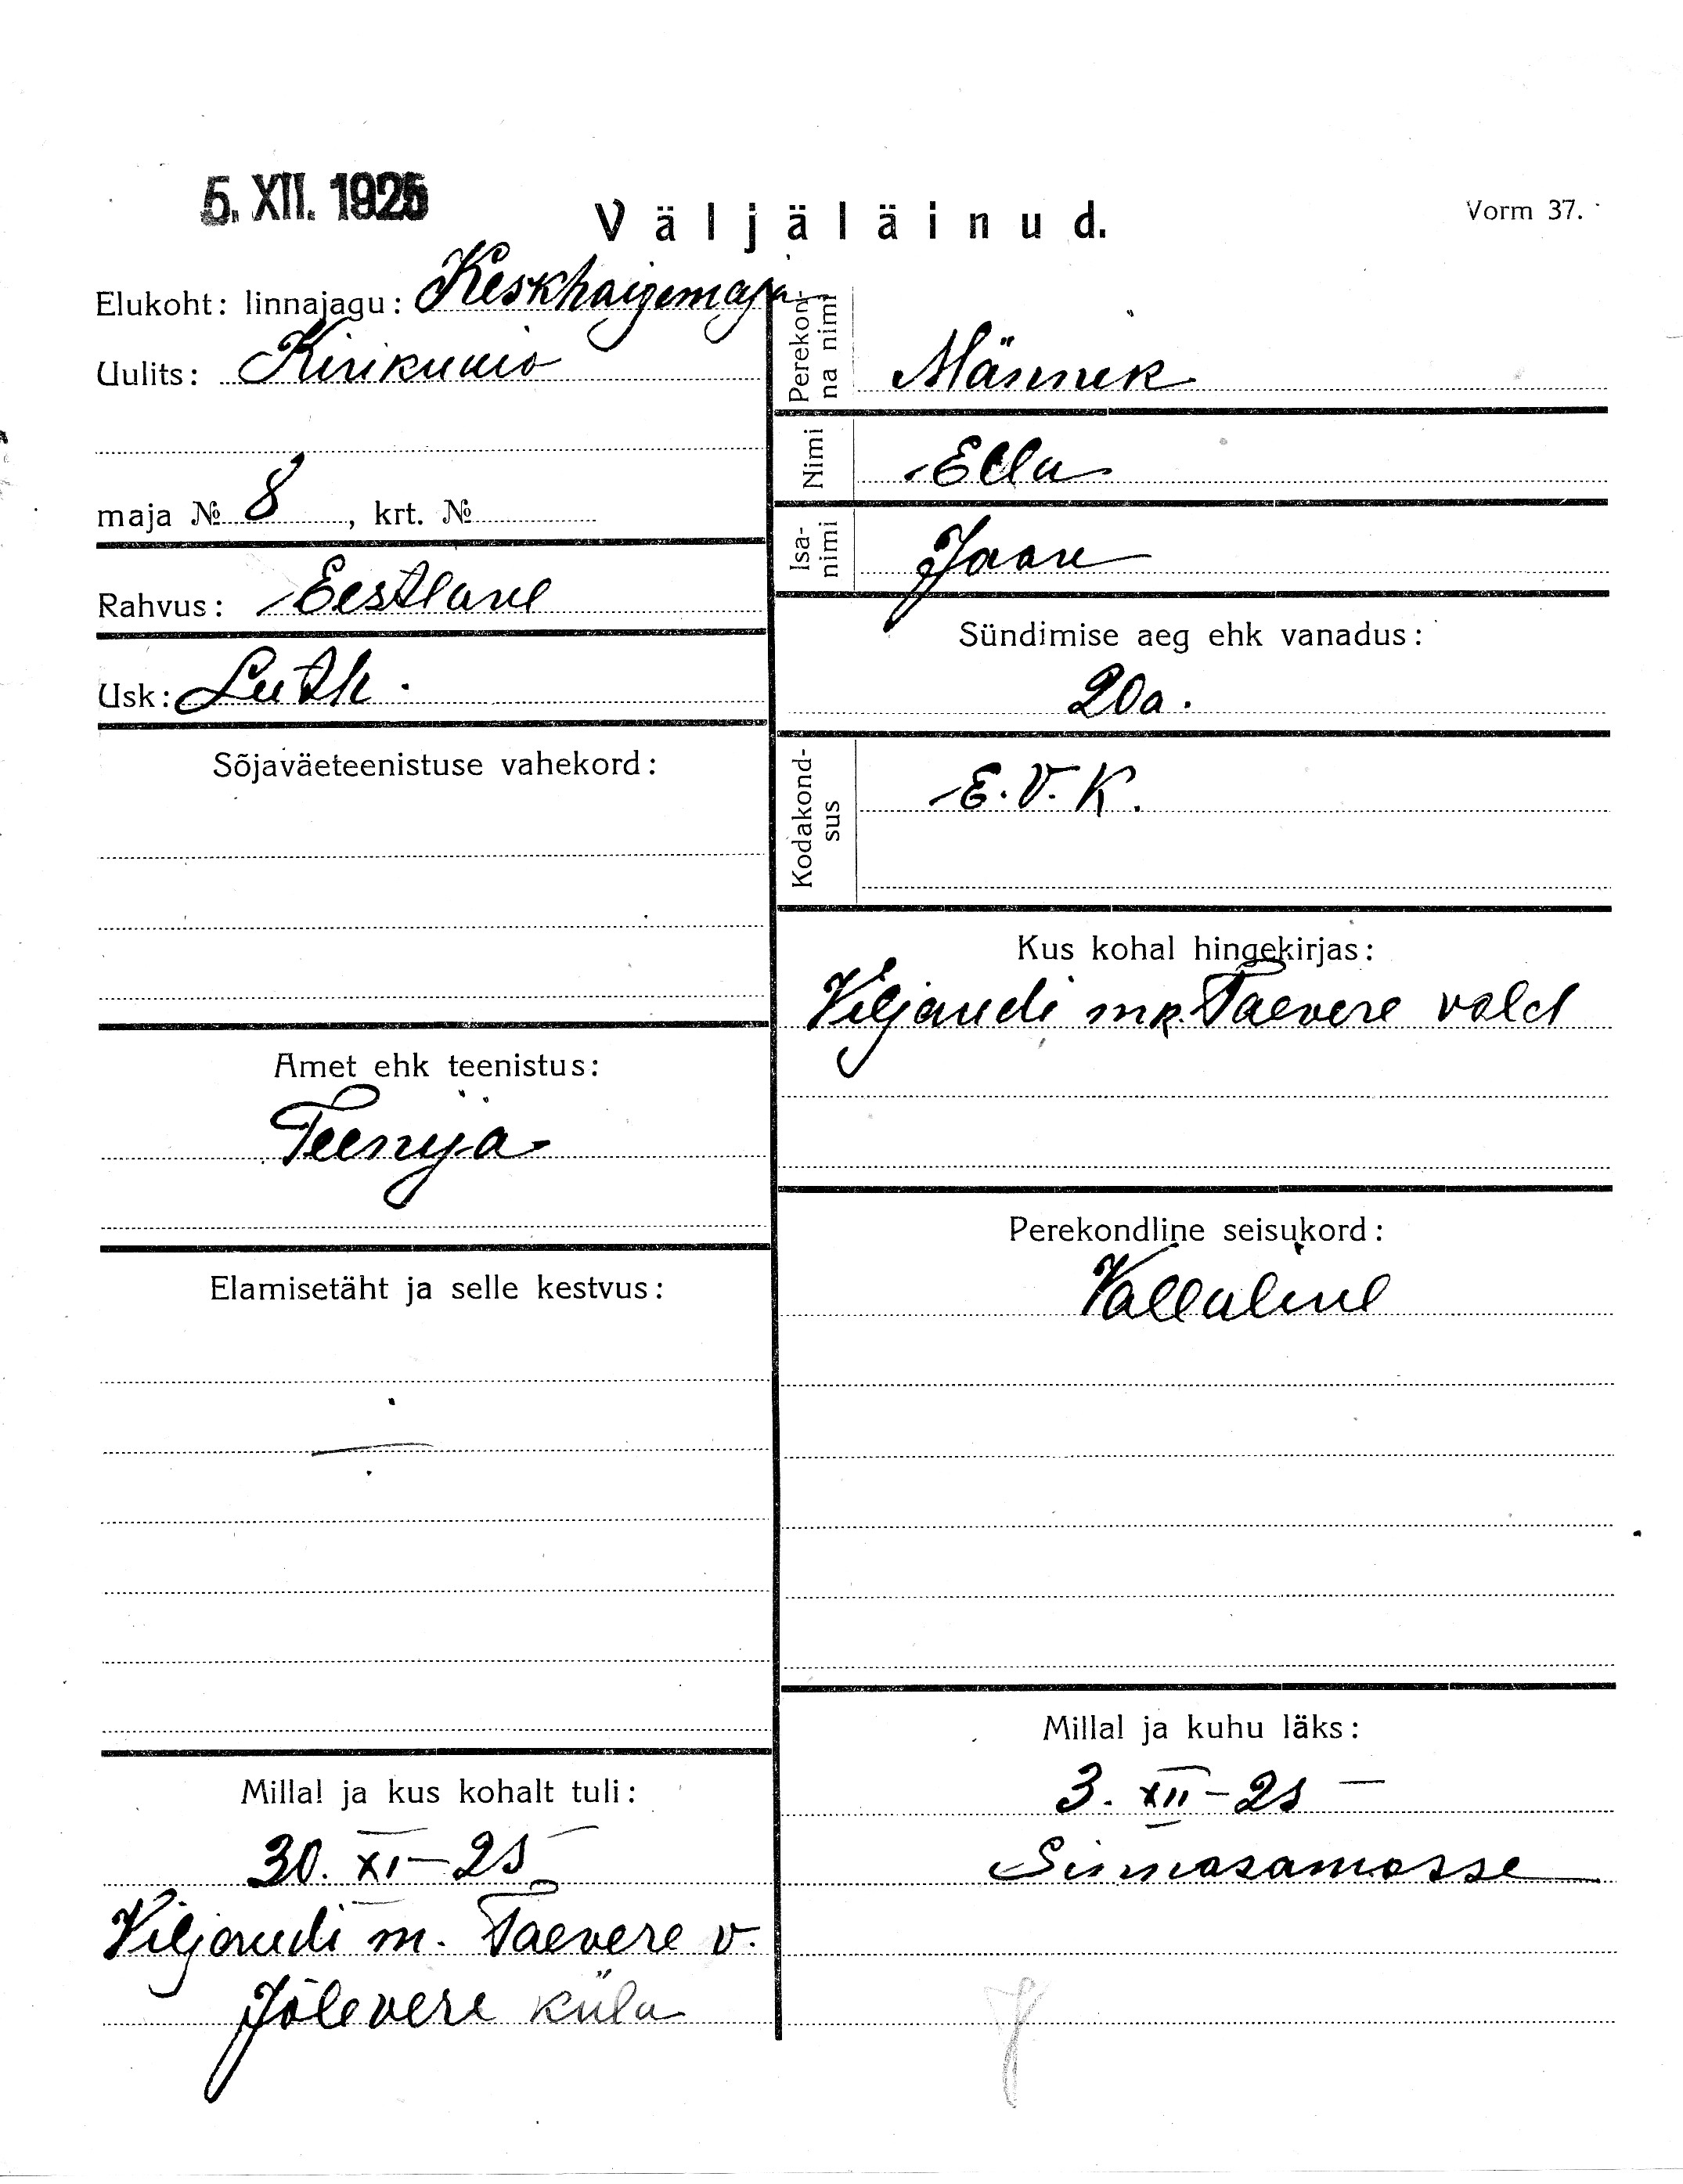 5. XII. 1925
Väljäläinud.
Vorm 37.
Elukoht: linnajagu: Keskhaigemaja
Uulits: Kirikumõ
maja № 8, krt. №
Rahvus: Eestlane
Usk: Luth.
Sõjaväeteenistuse vahekord:
Amet ehk teenistus:
Teenija
Elamisetäht ja selle kestvus:
Millal ja kus kohalt tuli:
30. XI - 25
Viljandi m. Taevere v.
Jälevere küla
Perekon-
na nimi
Männik
Nimi
Ella
Isa-
nimi
Jaan
Sündimise aeg ehk vanadus:
20a.
Kodakond-
sus
E. V. K.
Kus kohal hingekirjas:
Viljandi mk. Taevere vald
Perekondline seisukord:
Vallaline
Millal ja kuhu läks:
3. XII - 25 —
Sinnasamasse